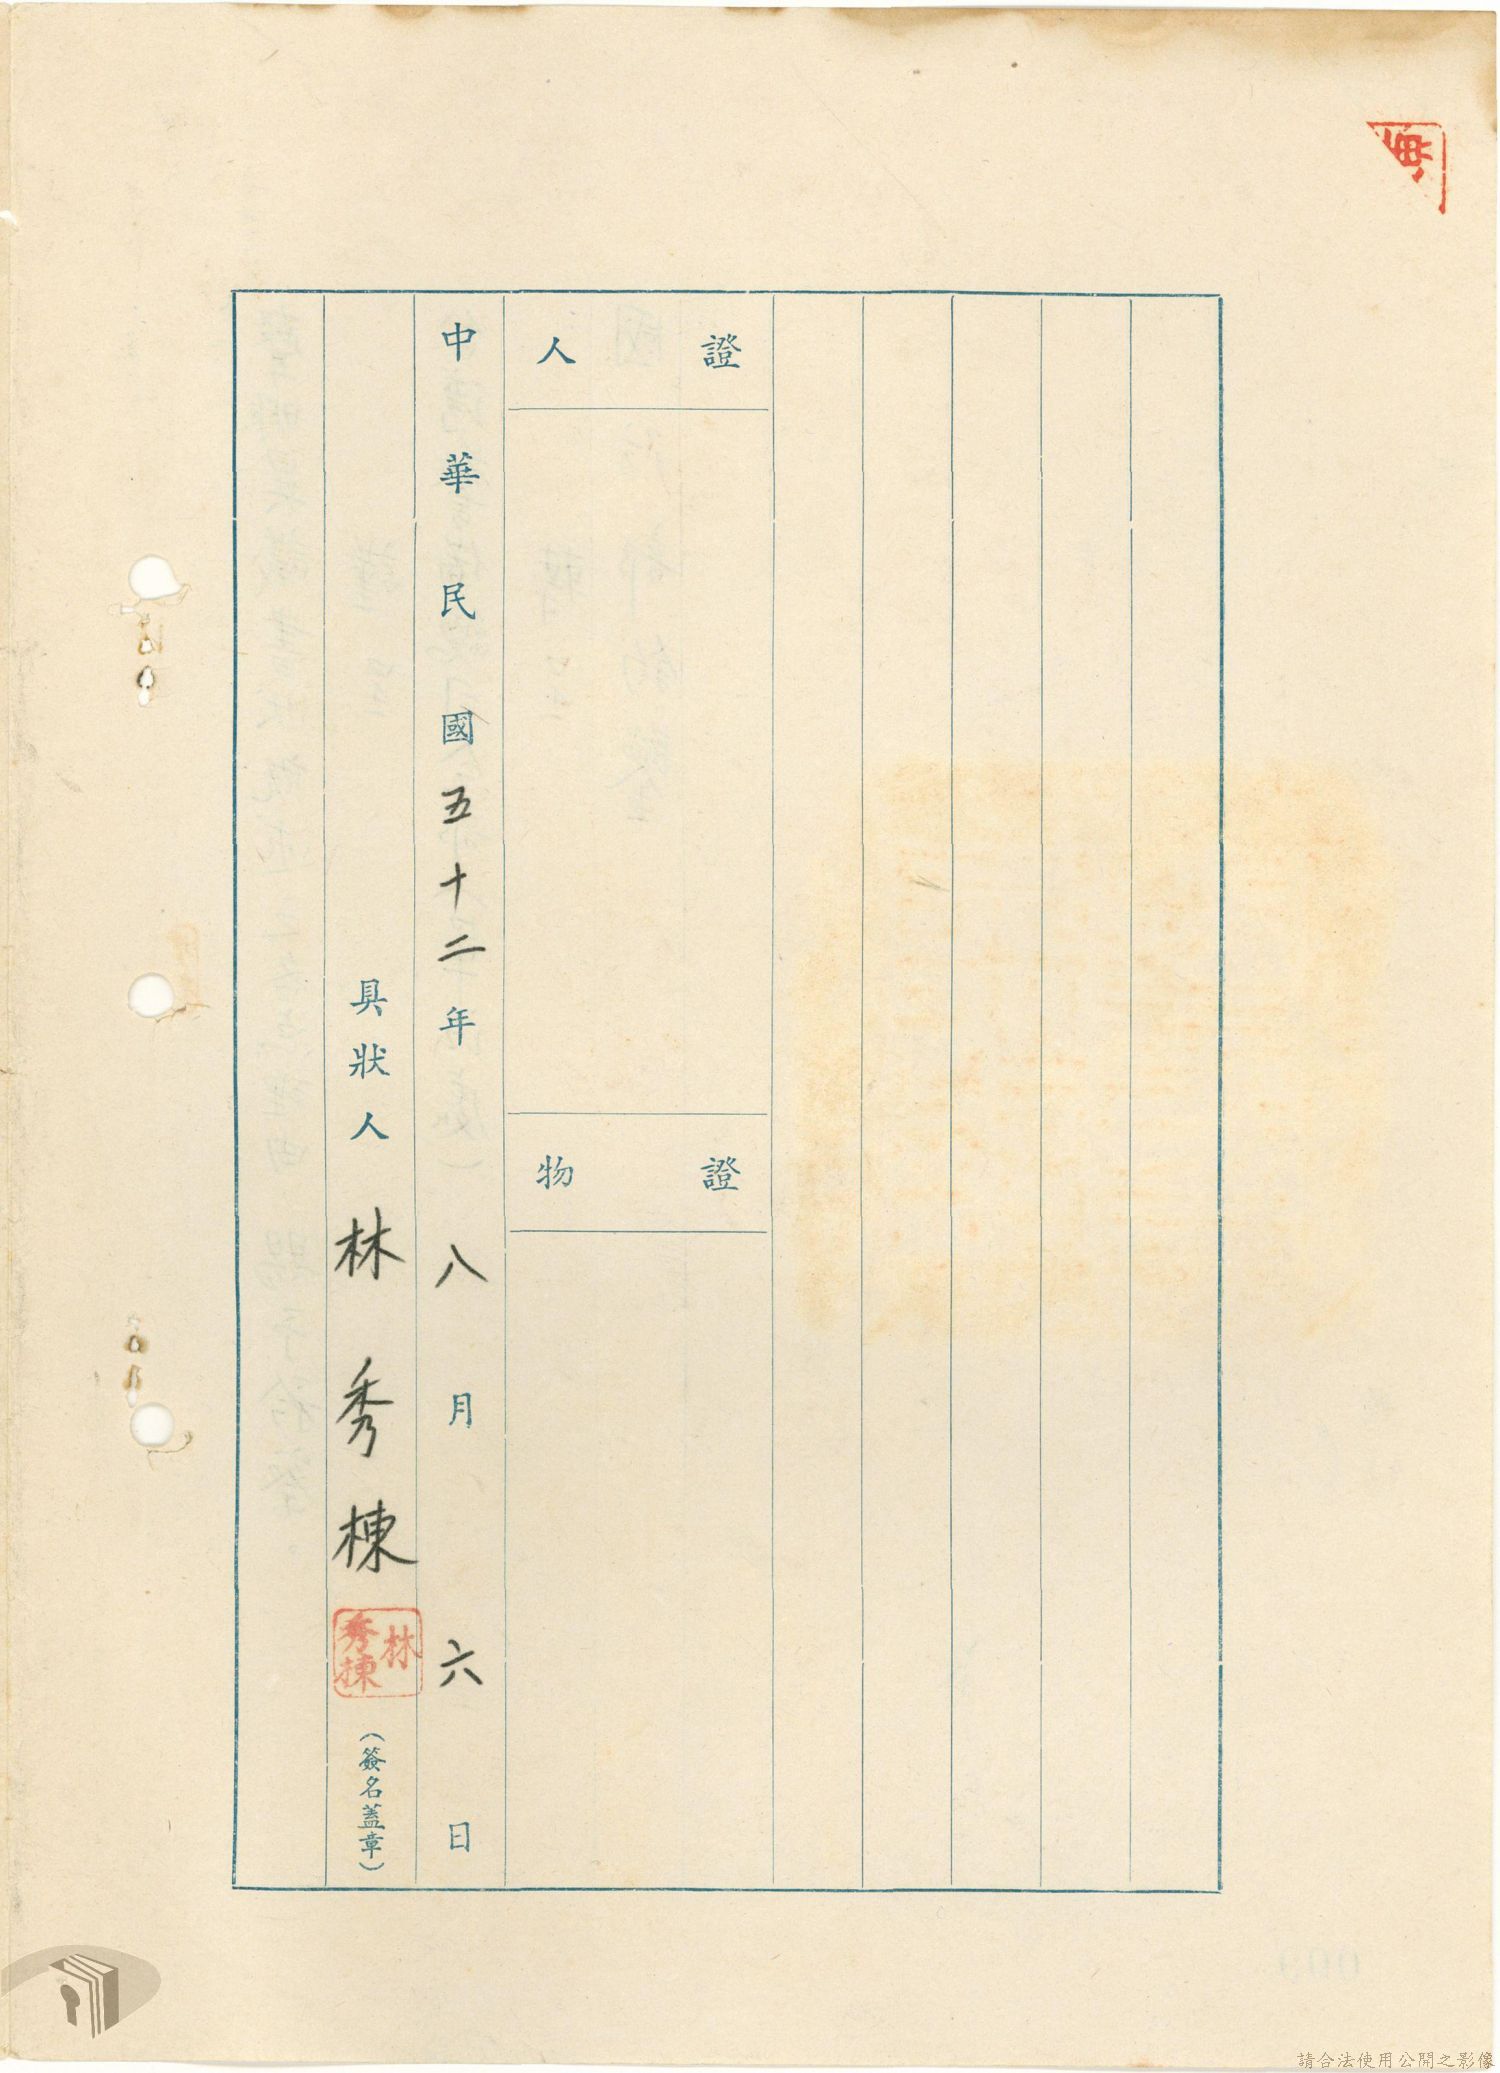 證人
證物
中華民國五十二年八月六日
具狀人 林秀棟
林秀棟
（簽名蓋章）
請合法使用公開之影像